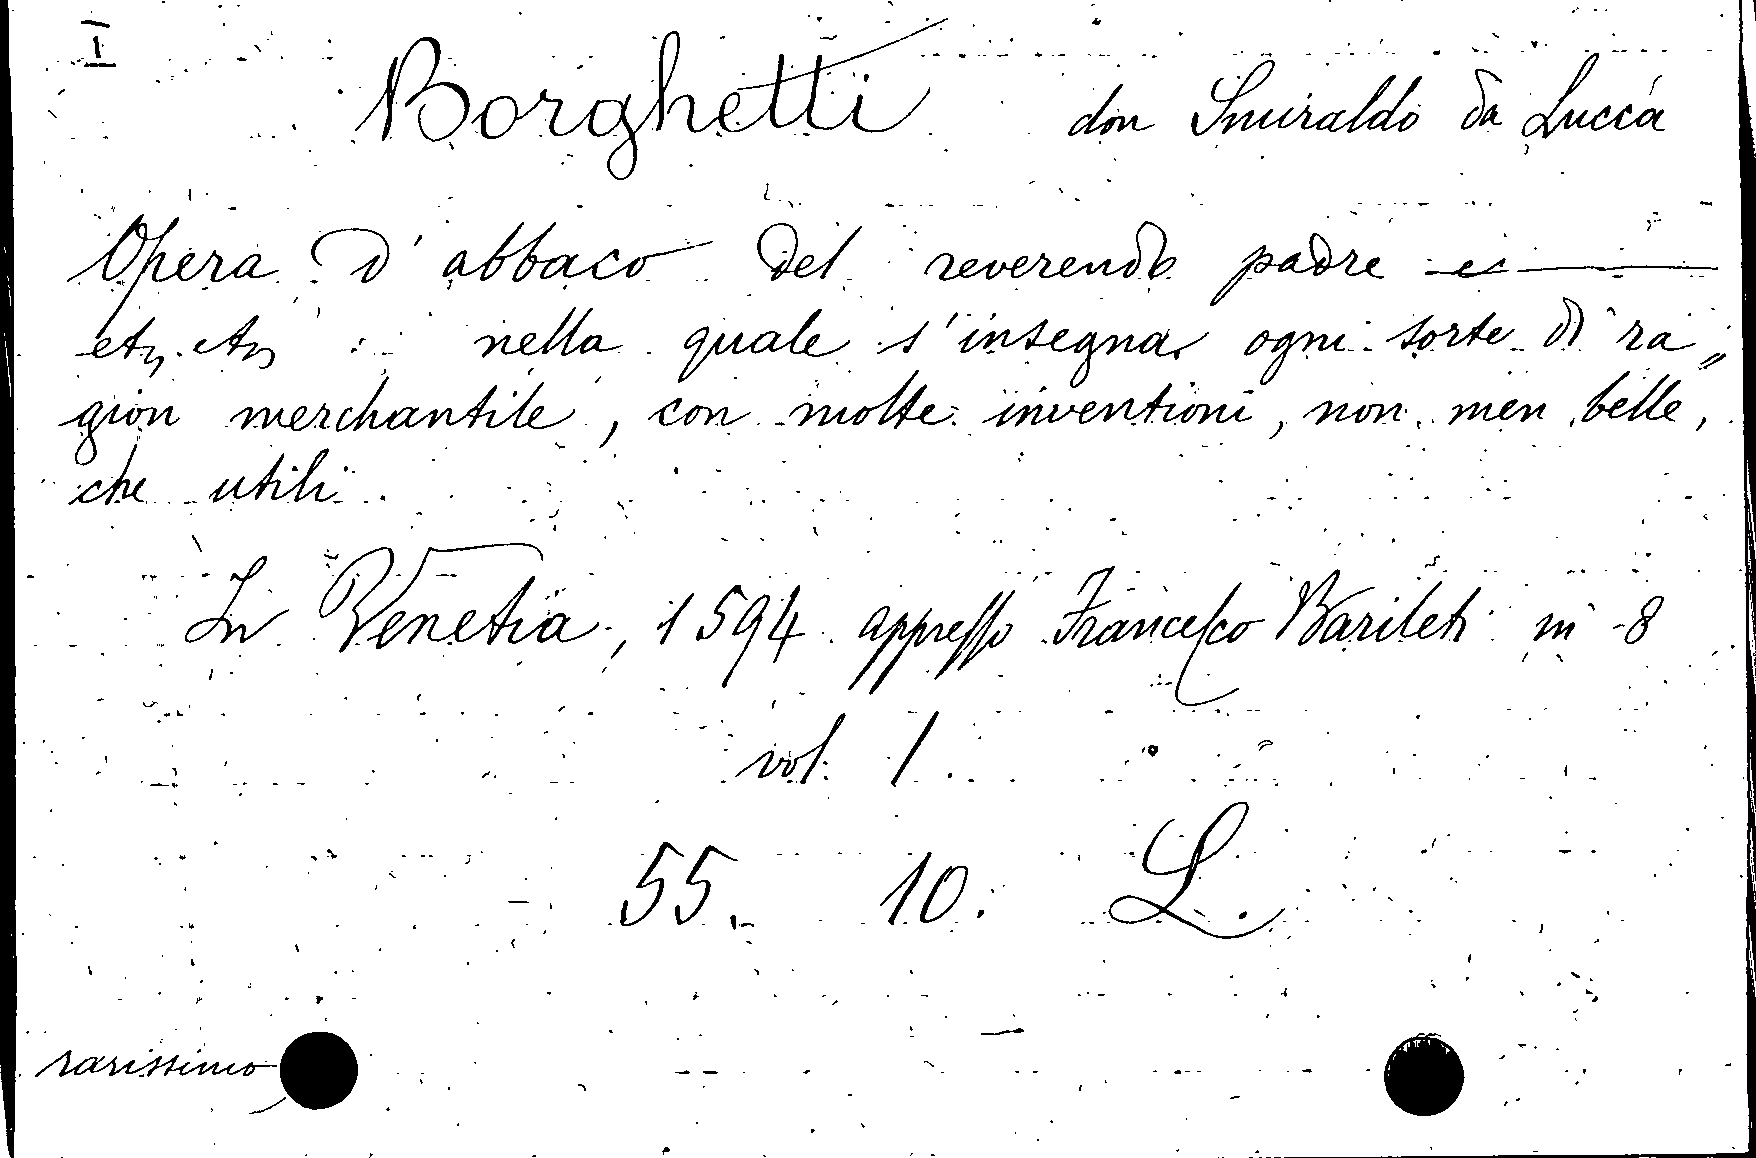 I
Borghetti don Smiraldo da Lucca
Opera d'abbaco del reverendo padre ec
etc. etc. nella quale s'insegna ogni sorte di ra„
gion merchantile, con molte inventioni, non men belle,
che utili.
In Venetia, 1594 appresso Francesco Barileti in 8
vol. 1.
55. 10. L.
rarissimo